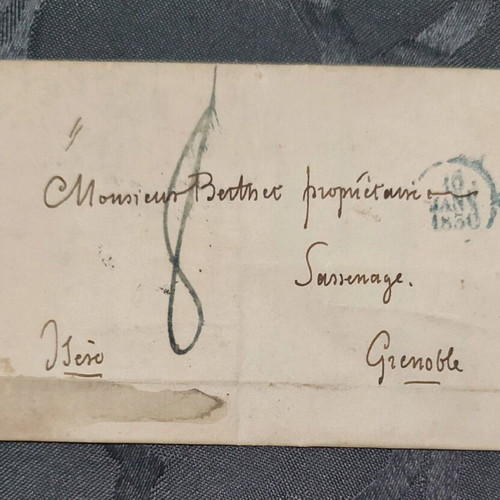 8
Monsieur Berthet propriétaire
16
JANV
1850
Sassenage.
Isère
Grenoble